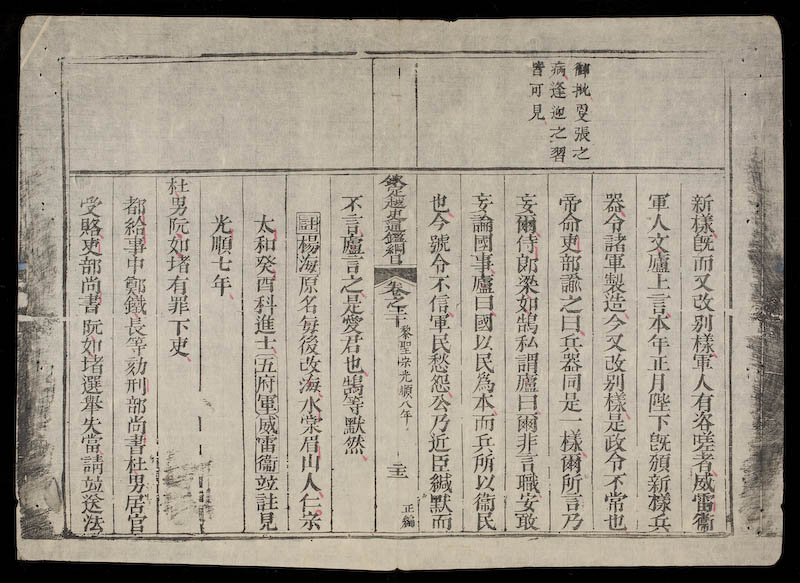 御批更張之
病逢迎之習
皆可見
新樣旣而又改别樣軍人有咨嗟者威雷衞
軍人文廬上言本年正月陛下旣頒新樣兵
器令諸軍製造今又改别樣是政令不常也
帝命吏部諭之曰兵器同是一樣爾所言乃
妄爾侍郎梁如鵠私謂廬曰爾非言職安敢
妄論國事廬曰國以民爲本而兵所以衞民
也今號令不信軍民愁怨公乃近臣緘默而
欽定越史通鑑綱目 卷之二十 黎聖宗光順八年 三十 正編
不言廬言之是愛君也鵠等默然
註楊海原名每後改海水棠眉山人仁宗
太和癸酉科進士五府軍威雷衞並註見
光順七年
杜男阮如堵有罪下吏
都給事中鄭鐵長等劾刑部尚書杜男居官
受賂吏部尚書阮如堵選舉失當請並送法